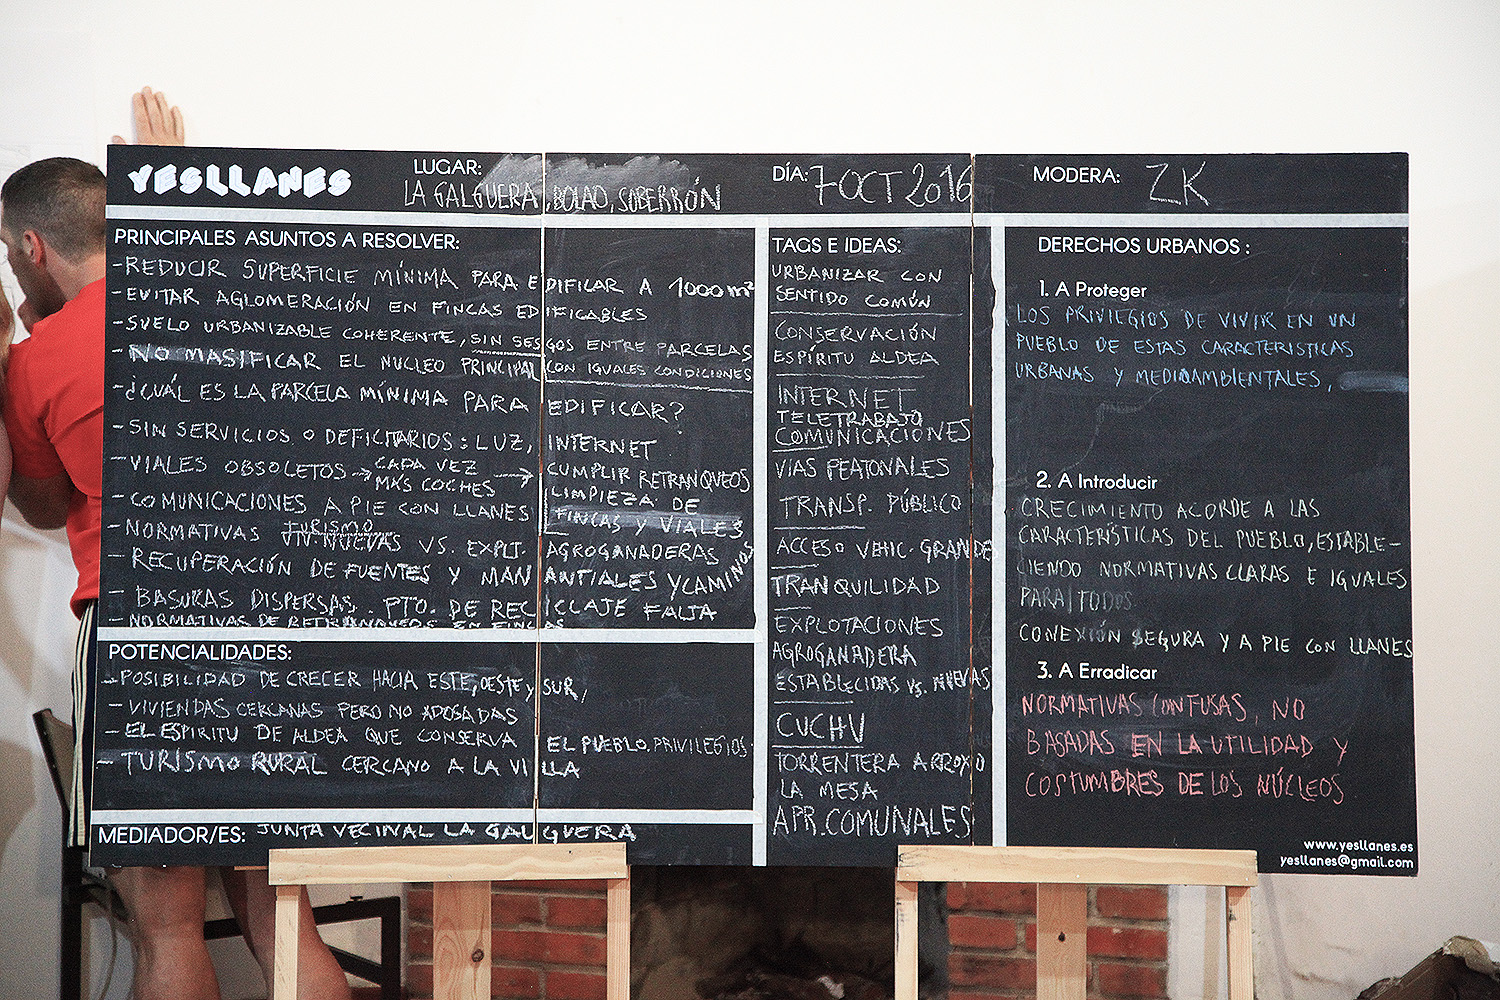 YESLLANES
LUGAR:
LA GALGUERA, BOLAO, SOBERRÓN
DÍA: 7 OCT 2016
MODERA: ZK
PRINCIPALES ASUNTOS A RESOLVER:
-REDUCIR SUPERFICIE MÍNIMA PARA EDIFICAR A 1000 m²
-EVITAR AGLOMERACIÓN EN FINCAS EDIFICABLES
-SUELO URBANIZABLE COHERENTE, SIN SESGOS ENTRE PARCELAS
CON IGUALES CONDICIONES
-NO MASIFICAR EL NUCLEO PRINCIPAL
-¿CUÁL ES LA PARCELA MÍNIMA PARA EDIFICAR?
-SIN SERVICIOS O DEFICITARIOS: LUZ, INTERNET
-VIALES OBSOLETOS → CADA VEZ
MÁS COCHES → CUMPLIR RETRANQUEOS
LIMPIEZA DE
FINCAS Y VIALES
-COMUNICACIONES A PIE CON LLANES
-NORMATIVAS TURISMO
VS. EXPLT. AGROGANADERAS
-RECUPERACIÓN DE FUENTES Y MANANTIALES Y CAMINOS
-BASURAS DISPERSAS. PTO. DE RECICLAJE FALTA
-NORMATIVAS DE RETRANQUEOS EN FINCAS
POTENCIALIDADES:
-POSIBILIDAD DE CRECER HACIA ESTE, OESTE y SUR,
-VIVIENDAS CERCANAS PERO NO ADOSADAS
-EL ESPIRITU DE ALDEA QUE CONSERVA EL PUEBLO, PRIVILEGIOS.
-TURISMO RURAL CERCANO A LA VILLA
MEDIADOR/ES: JUNTA VECINAL LA GALGUERA
TAGS E IDEAS:
URBANIZAR CON
SENTIDO COMÚN
CONSERVACIÓN
ESPÍRITU ALDEA
INTERNET
TELETRABAJO
COMUNICACIONES
VIAS PEATONALES
TRANSP. PÚBLICO
ACCESO VEHIC. GRANDES
TRANQUILIDAD
EXPLOTACIONES
AGROGANADERA
ESTABLECIDAS VS. NUEVAS
CUCHU
TORRENTERA ARROYO
LA MESA
APR. COMUNALES
DERECHOS URBANOS :
1. A Proteger
LOS PRIVILEGIOS DE VIVIR EN UN
PUEBLO DE ESTAS CARACTERISTICAS
URBANAS Y MEDIOAMBIENTALES,
2. A Introducir
CRECIMIENTO ACORDE A LAS
CARACTERÍSTICAS DEL PUEBLO, ESTABLE-
CIENDO NORMATIVAS CLARAS E IGUALES
PARA TODOS
CONEXIÓN SEGURA Y A PIE CON LLANES
3. A Erradicar
NORMATIVAS CONFUSAS, NO
BASADAS EN LA UTILIDAD Y
COSTUMBRES DE LOS NÚCLEOS
www.yesllanes.es
yesllanes@gmail.com